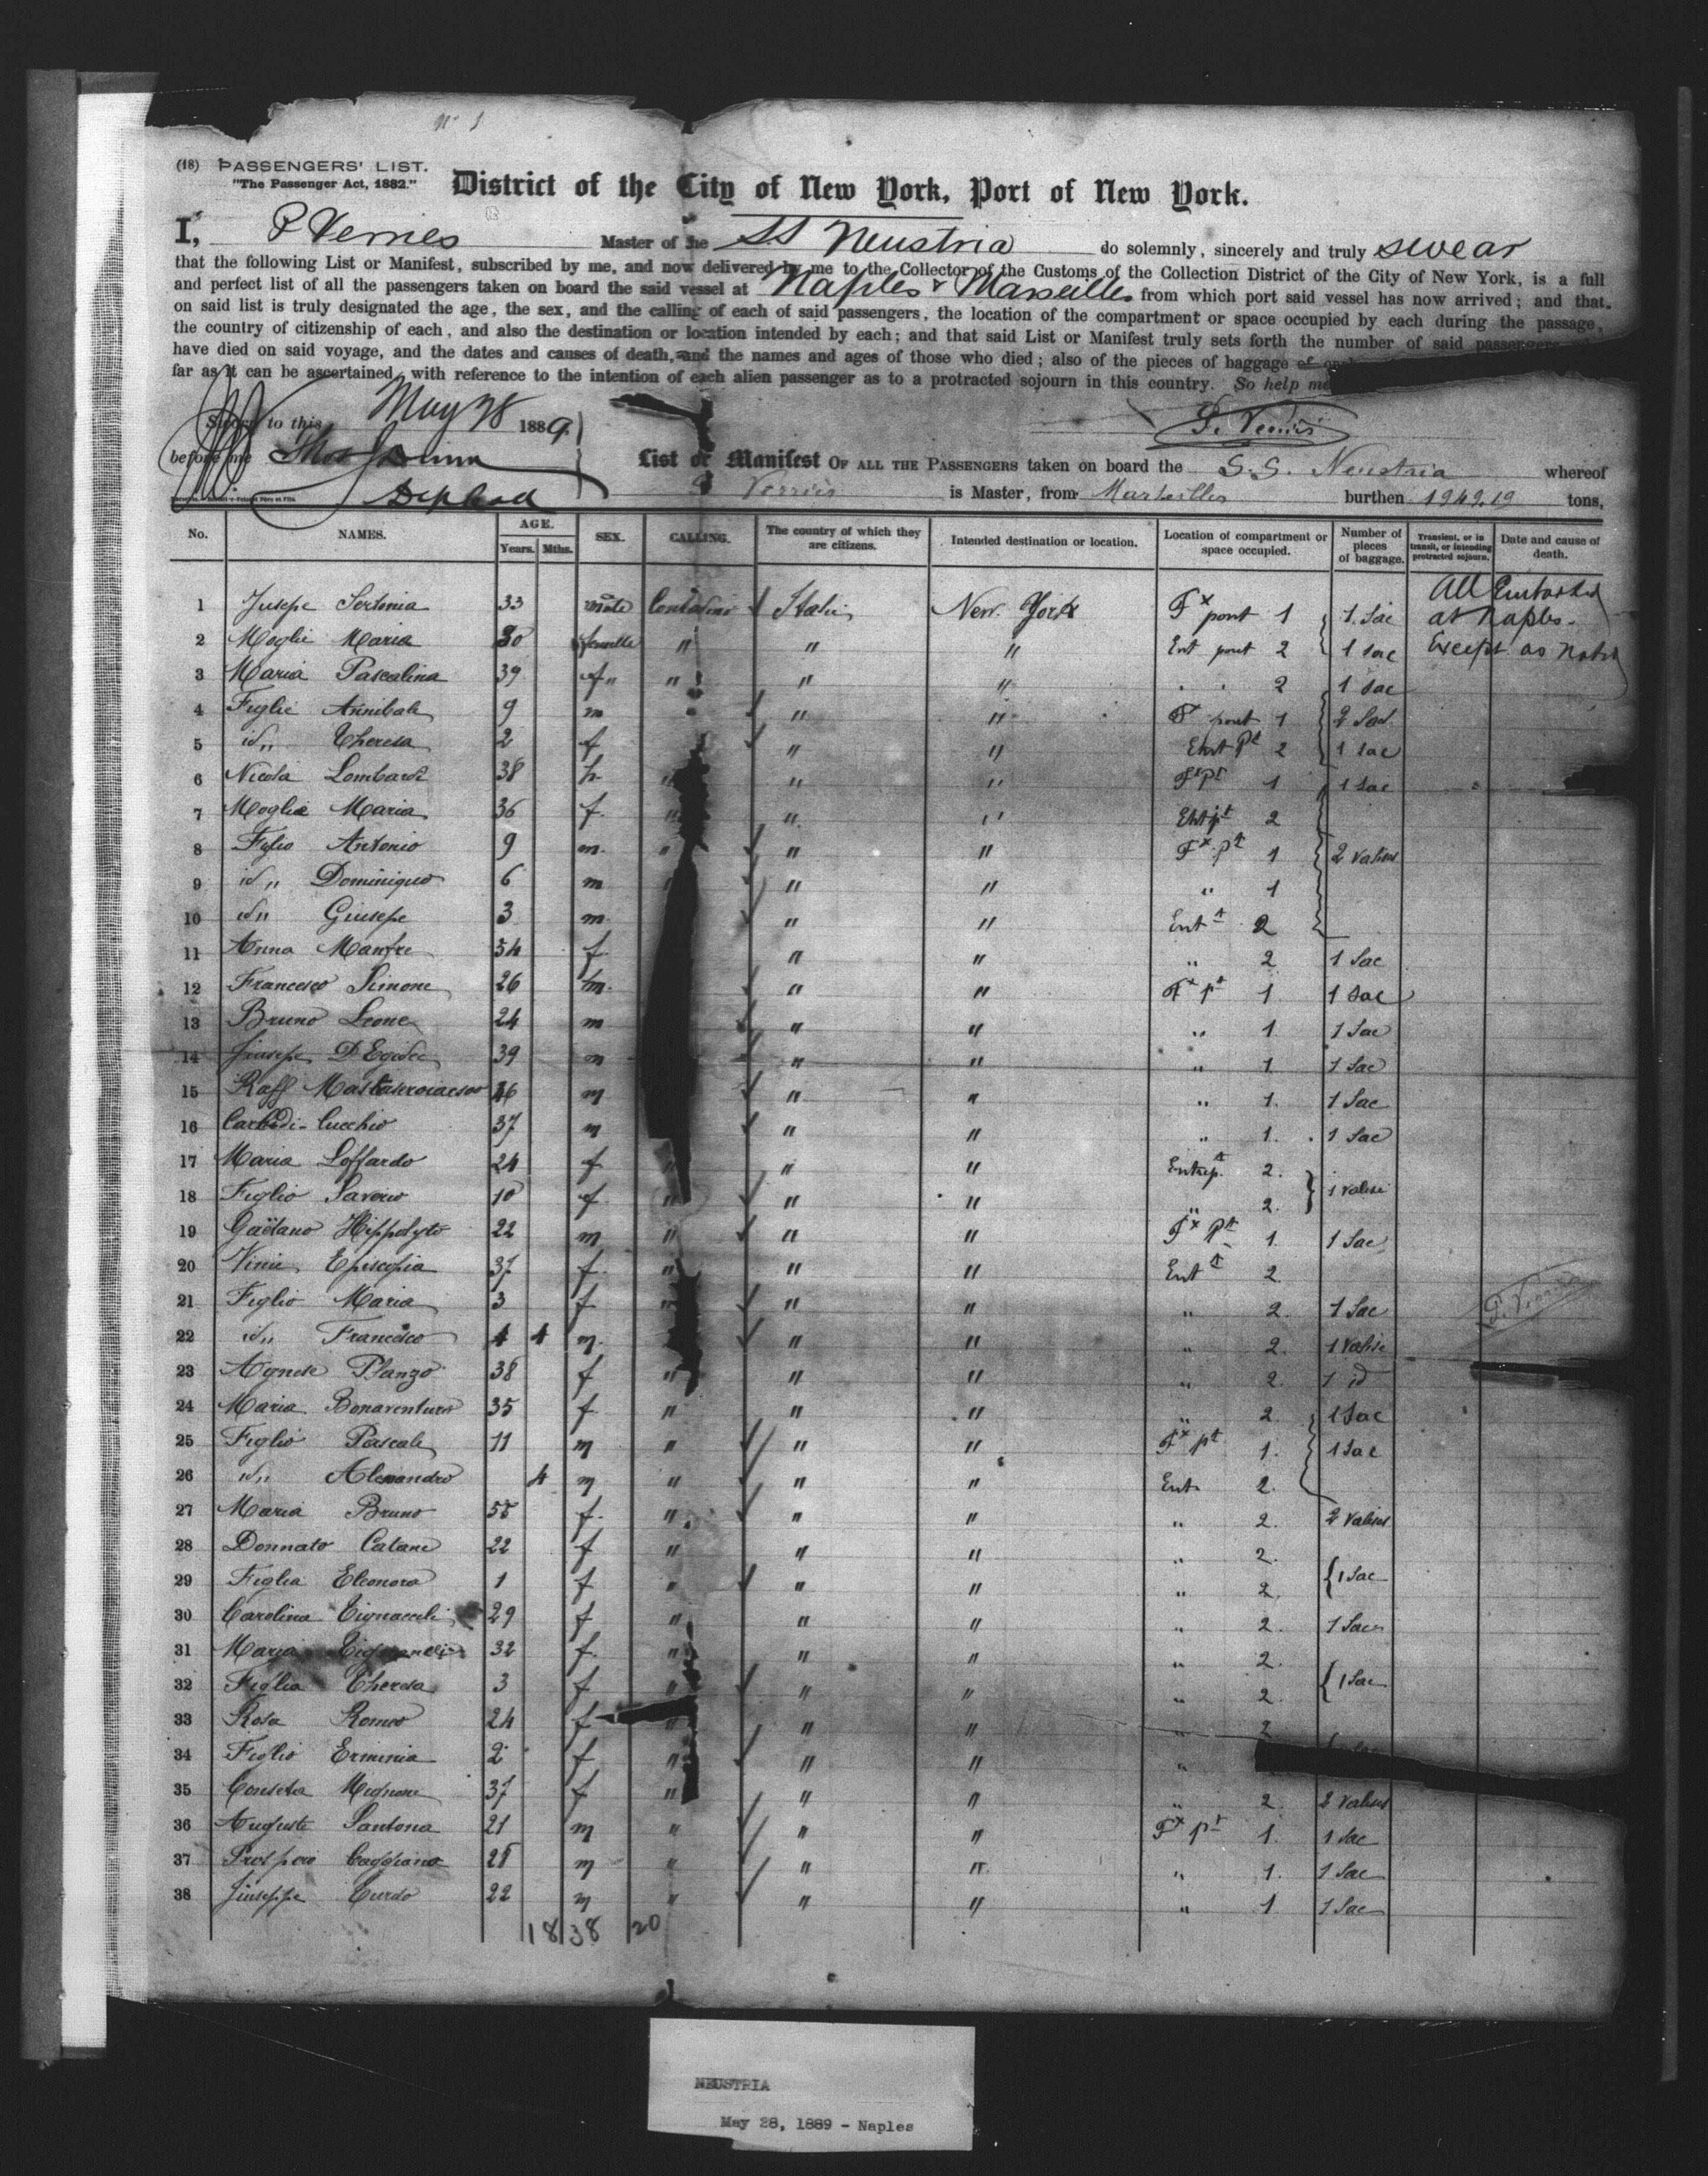 No 1
(18) PASSENGERS' LIST.
"The Passenger Act, 1882."
District of the City of New York, Port of New York.
I, P Verries Master of the SS Neustria do solemnly, sincerely and truly swear
that the following List or Manifest, subscribed by me, and now delivered by me to the Collector of the Customs of the Collection District of the City of New York, is a full
and perfect list of all the passengers taken on board the said vessel at Naples & Marseilles from which port said vessel has now arrived; and that
on said list is truly designated the age, the sex, and the calling of each of said passengers, the location of the compartment or space occupied by each during the passage,
the country of citizenship of each, and also the destination or location intended by each; and that said List or Manifest truly sets forth the number of said passengers
have died on said voyage, and the dates and causes of death, and the names and ages of those who died; also of the pieces of baggage of
far as it can be ascertained, with reference to the intention of each alien passenger as to a protracted sojourn in this country. So help me
Sworn to this May 28 1889
before me
P. Verries
List or Manifest OF ALL THE PASSENGERS taken on board the S.S. Neustria whereof
Verries is Master, from Marseilles burthen 1949.19 tons,
No. NAMES. AGE. Years. Mths. SEX. CALLING. The country of which they are citizens. Intended destination or location. Location of compartment or space occupied. Number of pieces of baggage. Transient, or in transit, or intending protracted sojourn. Date and cause of death.
All Embarked
at Naples.
Except as noted
1 Jusepe Sertonia 33 male Italie New York Fx pont 1 1 Sac
2 Moglie Maria 30 femelle " " " Ent pont 2 1 sac
3 Maria Pascalina 39 f " " " " 2 1 sac
4 Figlie Annibale 9 m " " pont 1 2 Sac
5 id " Theresa 2 f " " Ent Pt 2 1 sac
6 Nicola Lombardi 38 h " " " Fx Pt 1 1 sac
7 Moglie Maria 36 f " " " Ent pt 2
8 Figlio Antonio 9 m " " " Fx Pt 1 2 valises
9 id " Dominique 6 m " " " 1
10 id " Giusepe 3 m " " Ent t 2
11 Anna Manfre 54 f " " " 2 1 Sac
12 Francesco Simone 26 m " " Fx pt 1 1 Sac
13 Bruno Leone 24 m " " " 1 1 Sac
14 Jiusepe D Egidio 39 m " " " 1 1 Sac
15 Raff m " " " 1 1 Sac
16 Cucchio 37 m " " " 1 1 Sac
17 Maria Loffardo 24 f " " Entrep. t 2
18 Figlio Saverio 10 f " " " " 2 1 valise
19 Gaëtano Hippolyto 22 m " " " Fx Pt 1 1 Sac
20 Episcopia 37 f " " " Ent t 2
21 Figlio Maria 3 f " " " " 2 1 Sac
22 id " Francesco 4 m " " " 2 1 Valise
23 Agnese Planzo 38 f " " " " 2 1 id
24 Maria Bonaventura 35 f " " " " 2 1 Sac
25 Figlio Pascale 11 m " " " Fx pt 1 1 Sac
26 id " Alexandro 4 m " " " Ent 2
27 Maria Bruno 55 f " " " " 2 2 Valises
28 Donnato Catane 22 f " " " " 2
29 Figlia Eleonora 1 f " " " " 2 1 Sac
30 Carolina 29 f " " " " 2 1 Sac
31 Maria 32 f " " " " 2
32 Figlia Theresa 3 f " " " " 2 1 Sac
33 Rosa Romeo 24 f " " " " 2
34 Figlio Erminia 2 f " " " "
35 Conseta Mignone 37 f " " " " 2 2 Valises
36 Auguste Santona 21 m " " " Fx pt 1 1 Sac
37 Prospero Caggiano 28 m " " " " 1 1 Sac
38 Jiuseppe Curdo 22 m " " " " 1 1 Sac
18 38 20
P. Verries
NEUSTRIA
May 28, 1889 - Naples